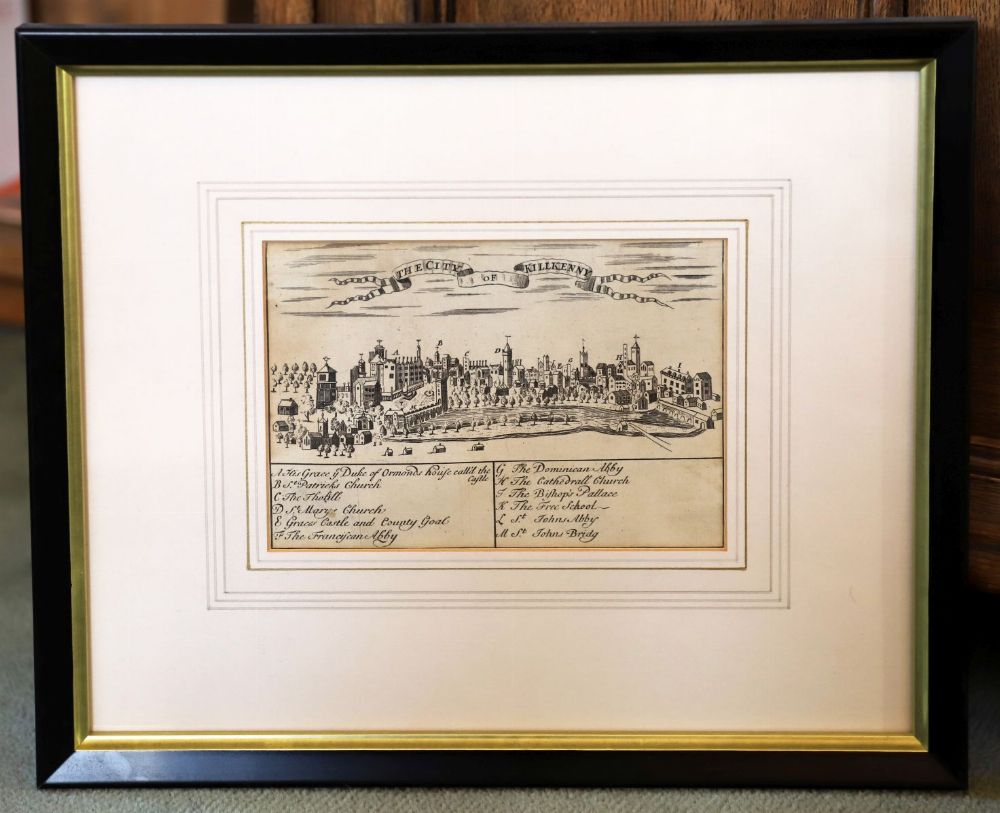 THE CITY OF KILLKENNY
A His Grace ỹ Duke of Ormonds house call'd the Castle
B St Patricks Church
C The Tholsill
D St Marys Church
E Graces Castle and County Goal
F The Francyscan Abby
G The Dominican Abby
H The Cathedrall Church
I The Bishops Pallace
K The Free School
L St Johns Abby
M St Johns Bridg
A
B
C
D
G
H
L